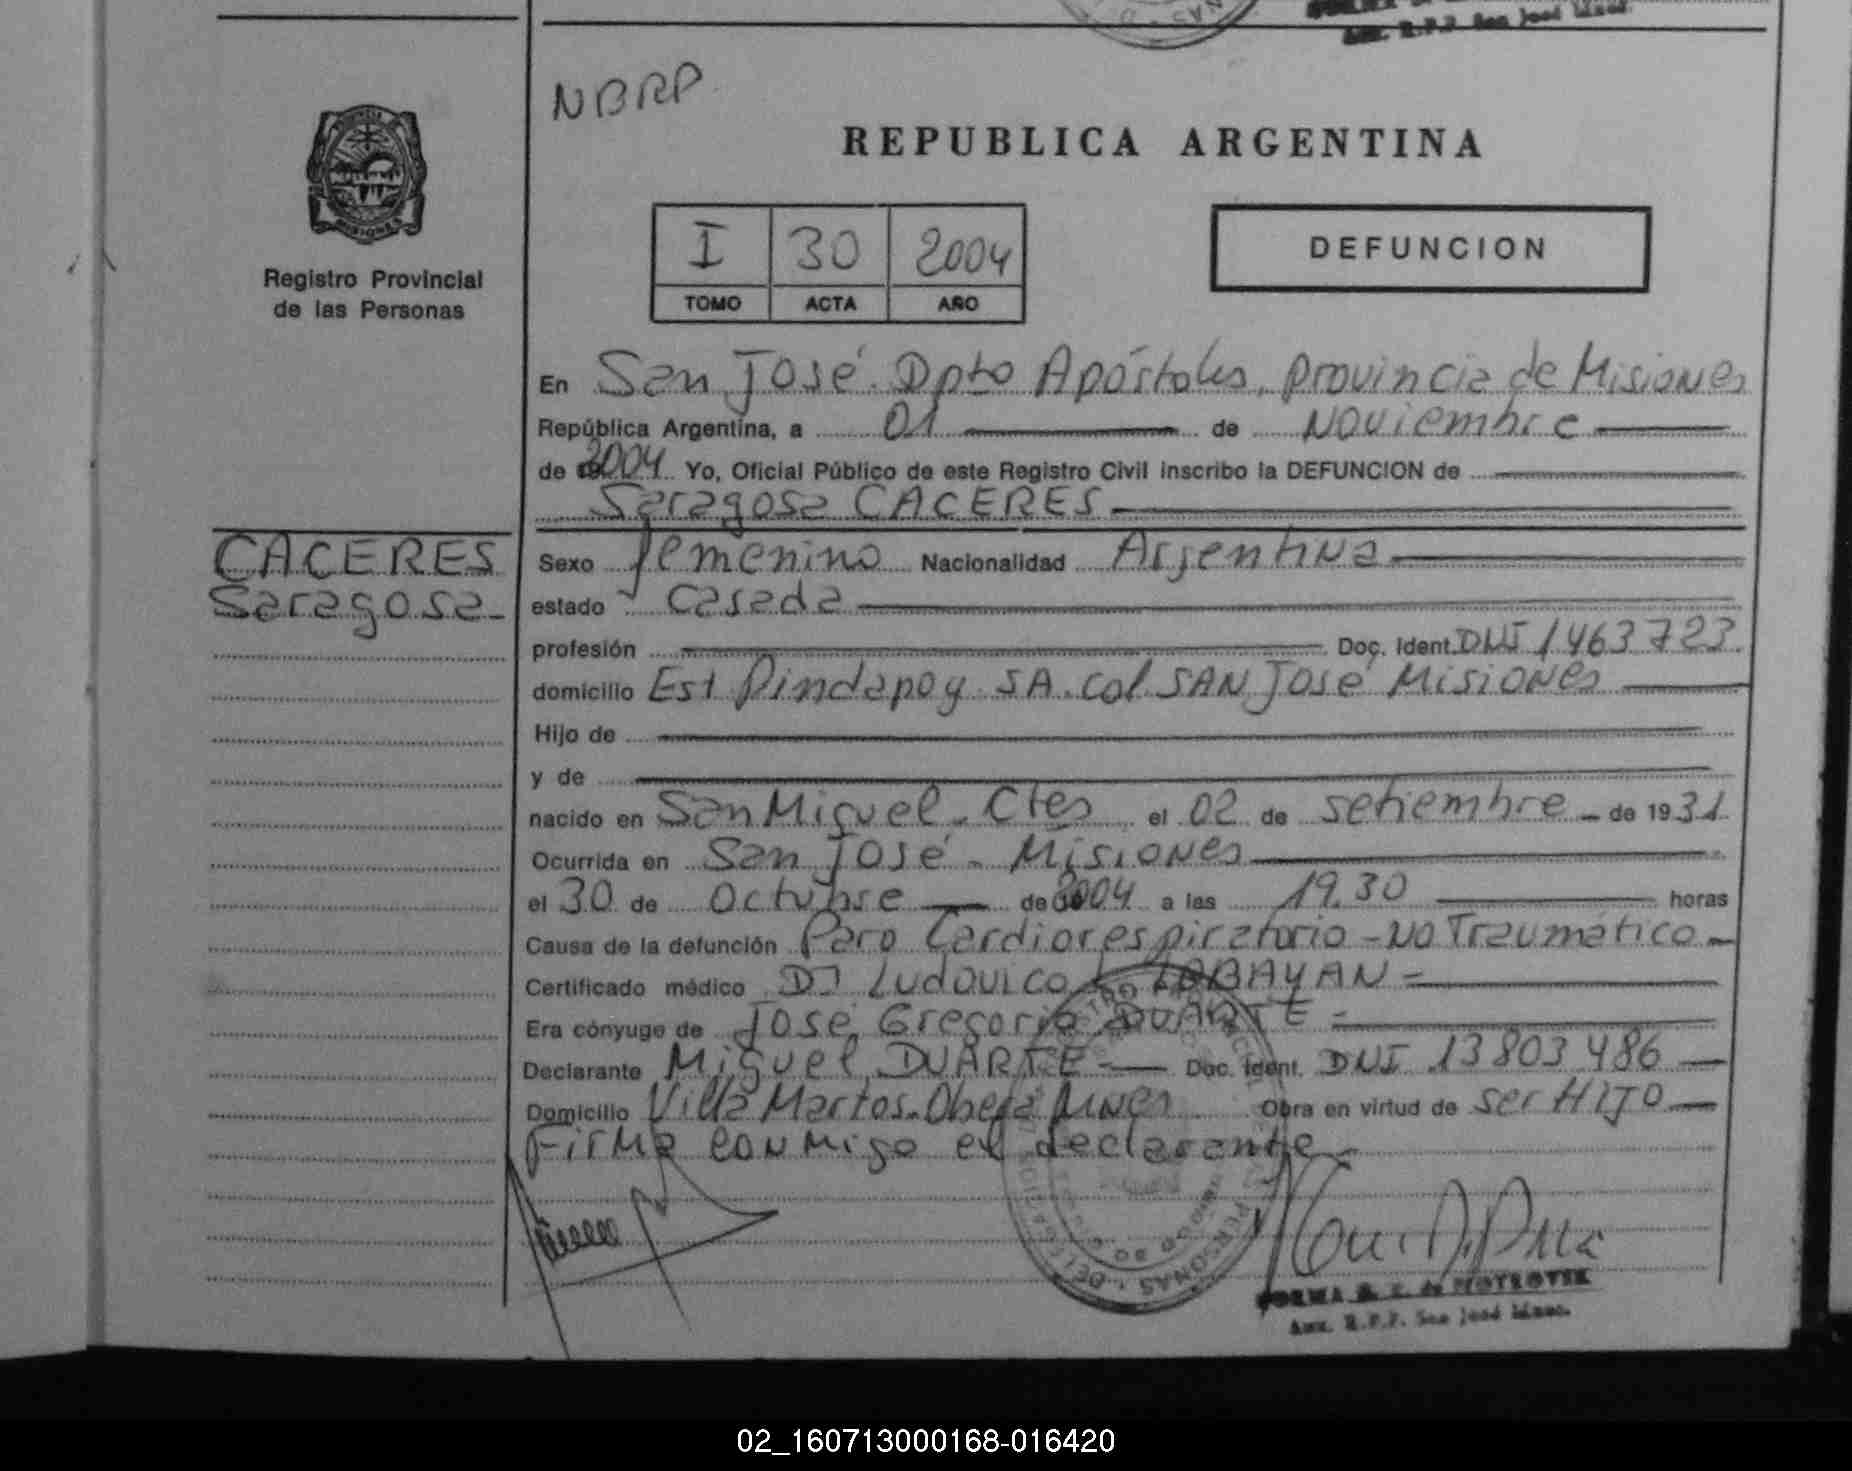 Aux. R.P.P. San José Mnes.
NBRP
REPUBLICA ARGENTINA
I 30 2004
TOMO ACTA AÑO
DEFUNCION
MISIONES
Registro Provincial
de las Personas
En San José. Dpto Apóstoles, provincia de Misiones
República Argentina, a 01 de Noviembre
de 2004 Yo, Oficial Público de este Registro Civil inscribo la DEFUNCION de
Saragosa CACERES
CACERES
Saragosa
Sexo femenino Nacionalidad Argentina
estado Casada
profesión Doc. Ident. DNI 1463723
domicilio Est Pindapoy SA. Col. SAN José Misiones
Hijo de
y de
nacido en San Miguel - Ctes el 02 de setiembre de 1931
Ocurrida en San José - Misiones
el 30 de Octubre de 2004 a las 19.30 horas
Causa de la defunción Paro Cardiorespiratorio - No Traumático
Certificado médico Dr Ludovico LABAYAN
Era cónyuge de José Gregorio DUARTE
Declarante Miguel DUARTE Doc. Ident. DNI 13803486
Domicilio Villa Martos. Oberá Mnes Obra en virtud de ser HIJO
Firma conmigo el declarante
NORMA de PIOTROVSK
Aux. R.P.P. San José Mnes.
02_160713000168-016420